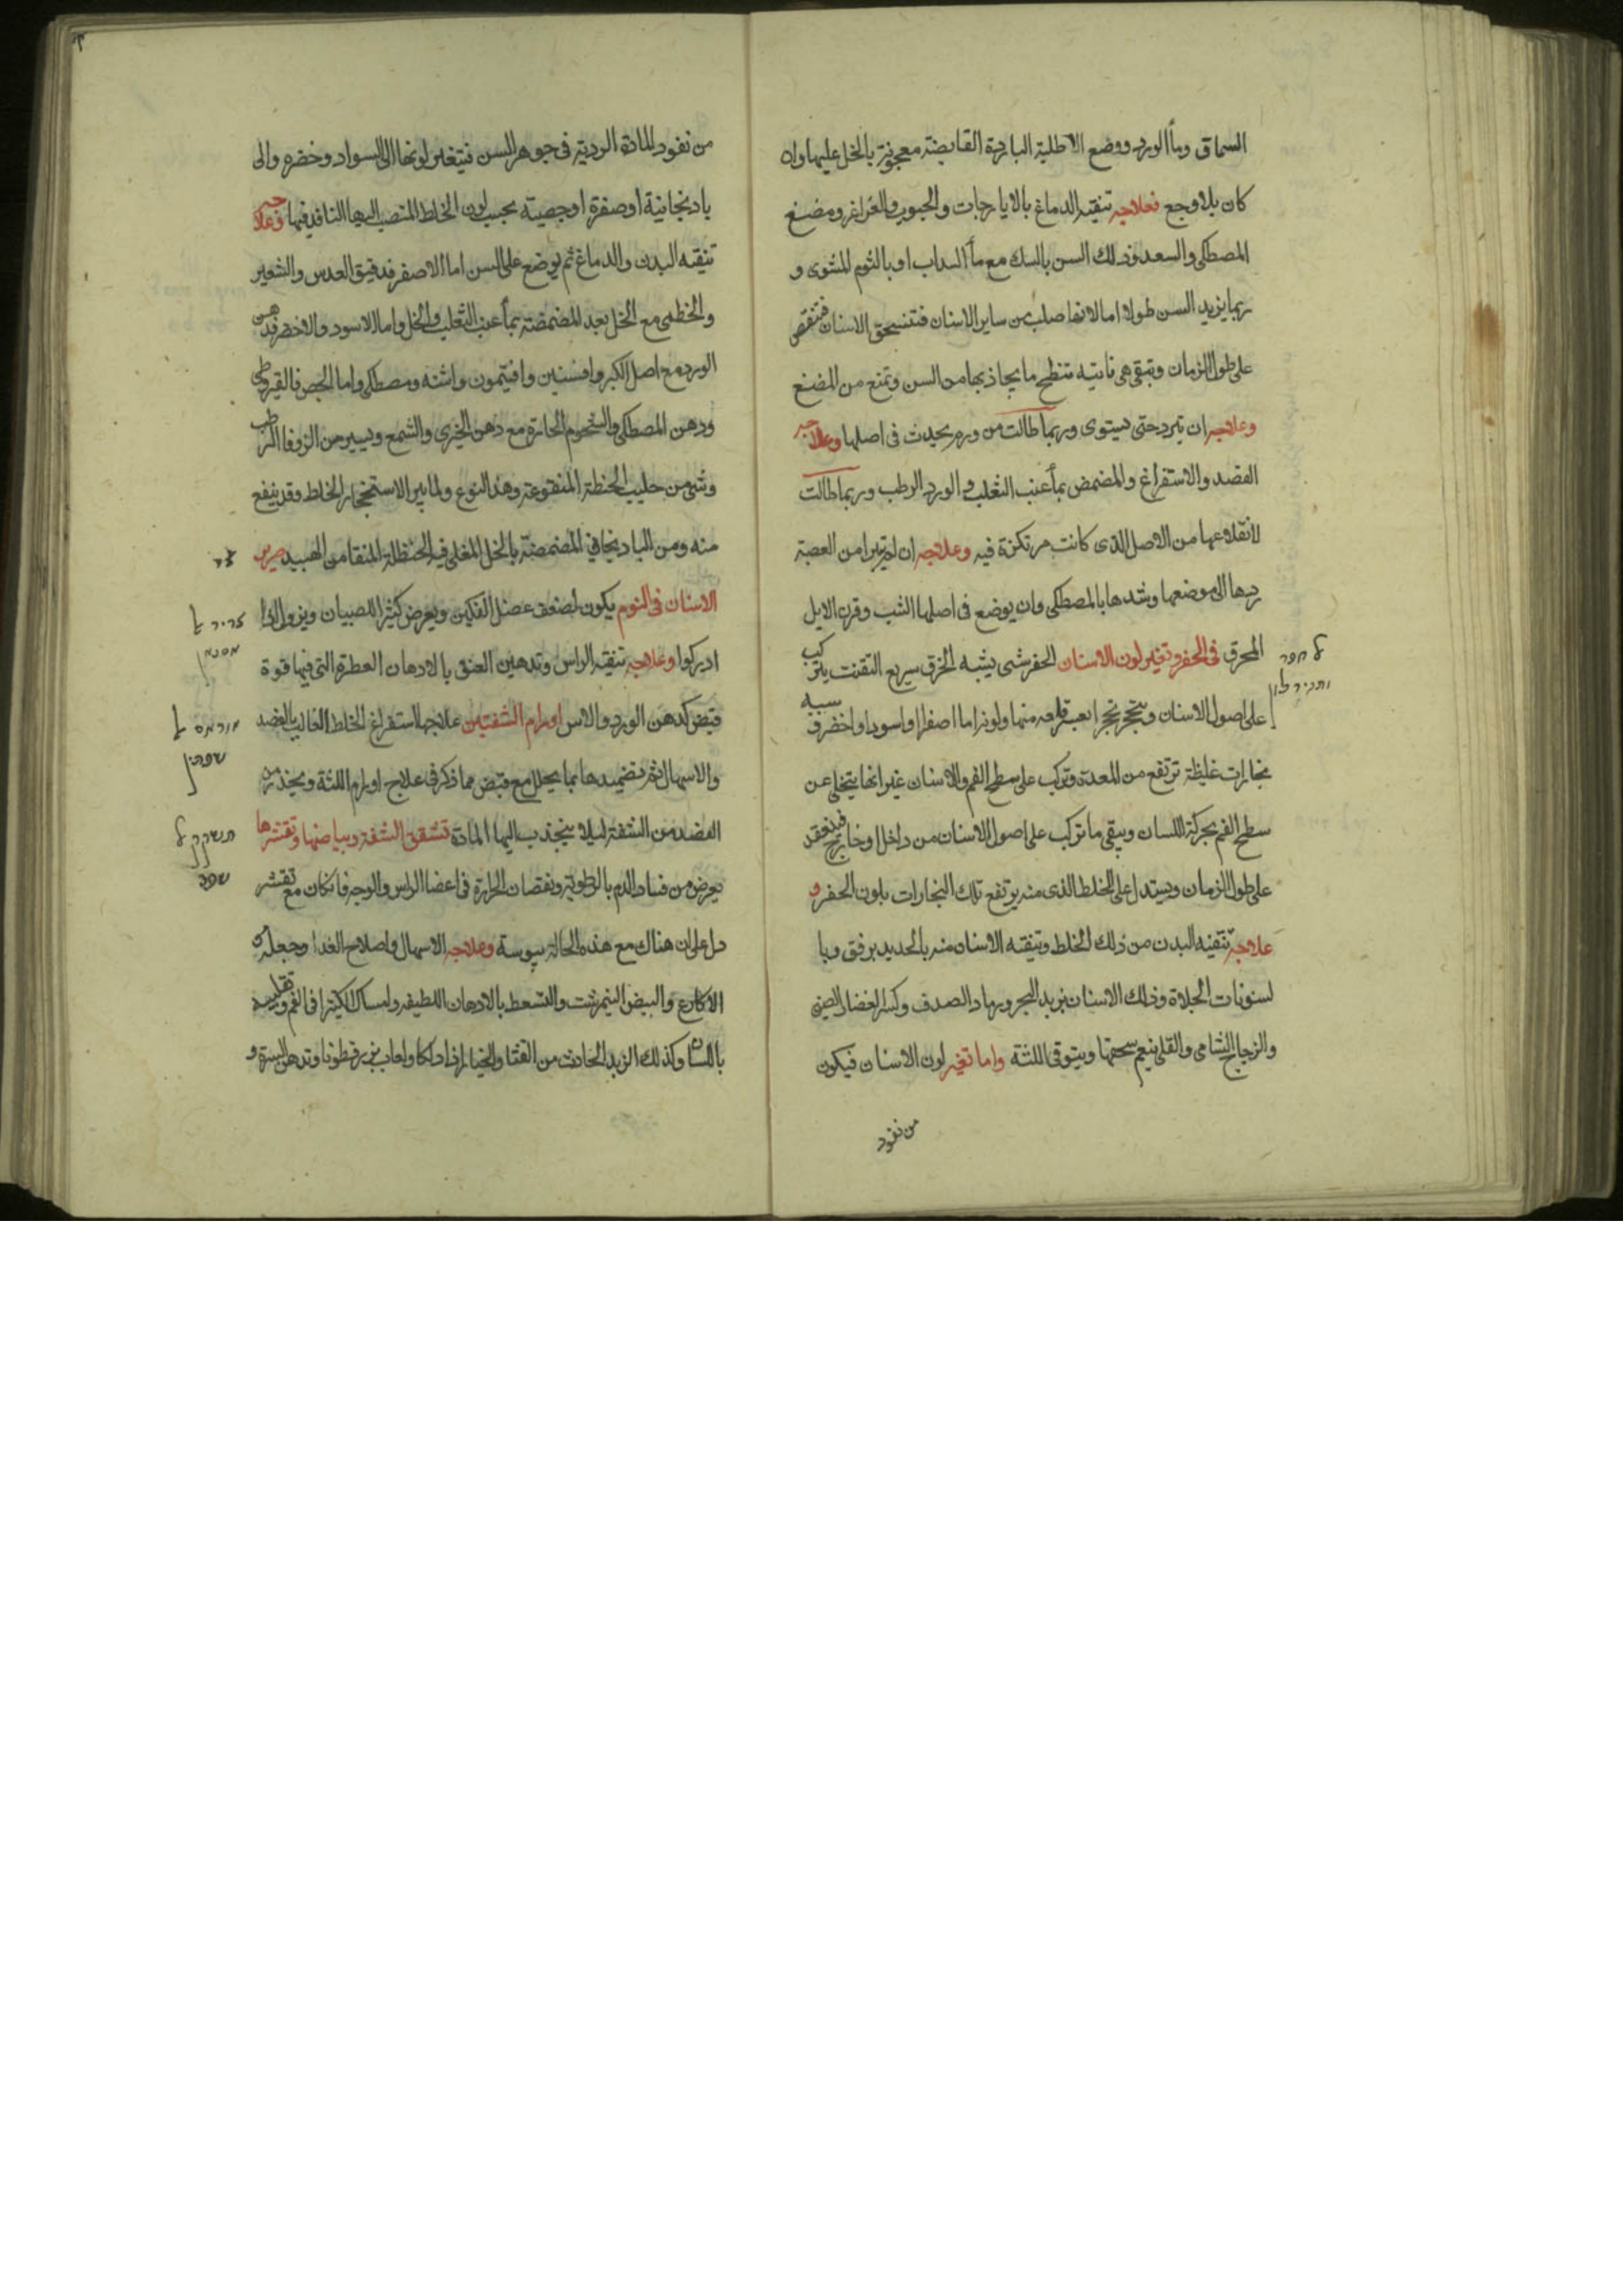 السماق وماٴ الورد ووضع الاطلية الباردة القابضة معجونة بالخل عليها وان
كان بلا وجع فعلاجه تنقية الدماغ بالايارجات والحبوب والغراغر ومضغ
المصطكى والسعد ودلك السن بالسك مع ماٴ السداب او بالثوم المشوى و
ربما يزيد السن طولا اما لانها صلب من ساير الاسنان فتنسحق الاسنان فتنقص
على طول الزمان وتبقى هى ناتيه تنطح ما يحاذيها من السن وتمنع من المضغ
وعلاجه ان تبرد حتى يستوى وربما طالت من ورم يحدث فى اصلها وعلاجه
الفصد والاستفراغ والمضمض بماٴ عنب الثعلب والورد الرطب وربما طالت
لانقلاعها من الاصل الذى كانت مرتكزة فيه وعلاجه ان لم تتبرا من العصبة
ردها الى موضعها وشدها بالمصطكى وان يوضع فى اصلها الشب وقرن الايل
المحرق فى الحفر وتغير لون الاسنان الحفر شى يشبه الخزف سريع التفتت يتركب
على اصول الاسنان ويتحجر تحجرا يعسر قلعه منها ولونه اما اصفر او اسود او اخضر وسببه
بخارات غليظة ترتفع من المعدة وتركب على سطح الفم والاسنان غير انها يتخلى عن
سطح الفم بحركة اللسان ويبقى ما تركب على اصول الاسنان من داخل وخارج فينعقد
على طول الزمان ويستدل على الخلط الذى منه يرتفع تلك البخارات بلون الحفر و
علاجه تنقيه البدن من ذلك الخلط وتنقيه الاسنان منه بالحديد برفق وبا
لسنونات الجلاة ودلك الاسنان بزبد البحر ورماد الصدف وكسر الغضار الصينى
والزجاج الشامى والقلى ينعم سحقها ويتوقى اللثة واما تغير لون الاسنان فيكون
من نفود
ל חפר
ותגיר לון
من نفود المادة الردية فى جوهر السن فيتغير لونها الى السواد وخضره والى
بادنجانية او صفرة او جصيته بحسب لون الخلط المنصب اليها النافد فيها وعلاجه
تنقيه البدن والدماغ ثم يوضع على السن اما الاصفر فدقيق العدس والشعير
والخطمى مع الخل بعد المضمضة بماٴ عنب الثعلب والخل واما الاسود والاخضر فدهن
الورد مع اصل الكبر وافسنتين وافيتمون واشنه ومصطكى واما الجصى فالقيروطى
ودهن المصطكى والشحوم الحارة مع دهن الخيرى والشمع ويسير من الزوفا الرطب
وشى من حليب الحنطة المنقوعة وهذا النوع ولما بين الاستحجار الخلط وقد ينفع
منه ومن البادنجانى المضمضة بالخل المغلى فيه الحنظلة المنقا من الهبيد صرير
الاسنان فى النوم يكون لضعف عضل الفكين ويعرض كثيرا للصبيان ويزول اذا
ادركوا وعلاجه تنقيه الراس وتدهين العنق بالادهان العطرة التى فيها قوة
قبض كدهن الورد والاس اورام الشفتين علاجها استفراغ الخلط الغالب بالفصد
والاسهال ثم تضميدها بما يحلل مع قبض مما ذكر فى علاج اورام اللثة ويحذر من
الفصد من الشفة ليلا ينجذب اليها المادة تشقق الشفة وبياضها وتقشرها
يعرض من فساد الدم بالرطوبة ونقصان الحرارة فى اعضا الراس والوجه فان كان مع تقشر
دل على ان هناك مع هذه الحالة يبوسة وعلاجه الاسهال واصلاح الغدا وجعله
الاكارع والبيض النيمرشت والتسعط بالادهان اللطيفه وامساك الكثيرا فى الفم وتقليبه
باللسان وكذلك الزبد الحادث من القثا والخيار اذا دلكا ولعاب بزرقطونا وتدهن السرة و
צריר א
אסנאן
אוראם א
שפתין
תשקק ל
שפה